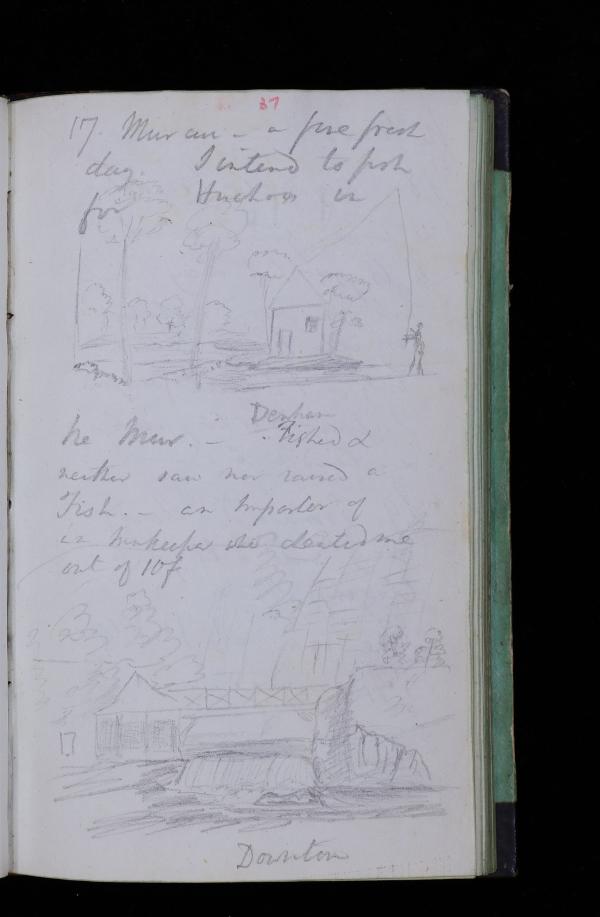 37
17. Murau – a fine fresh
day. I intend to fish
for Huchos in
Denham
he Mur. – Fished &
neither saw nor raised a
Fish. – an Imposter of
an Innkeeper who cheated me
out of 10f
Downton